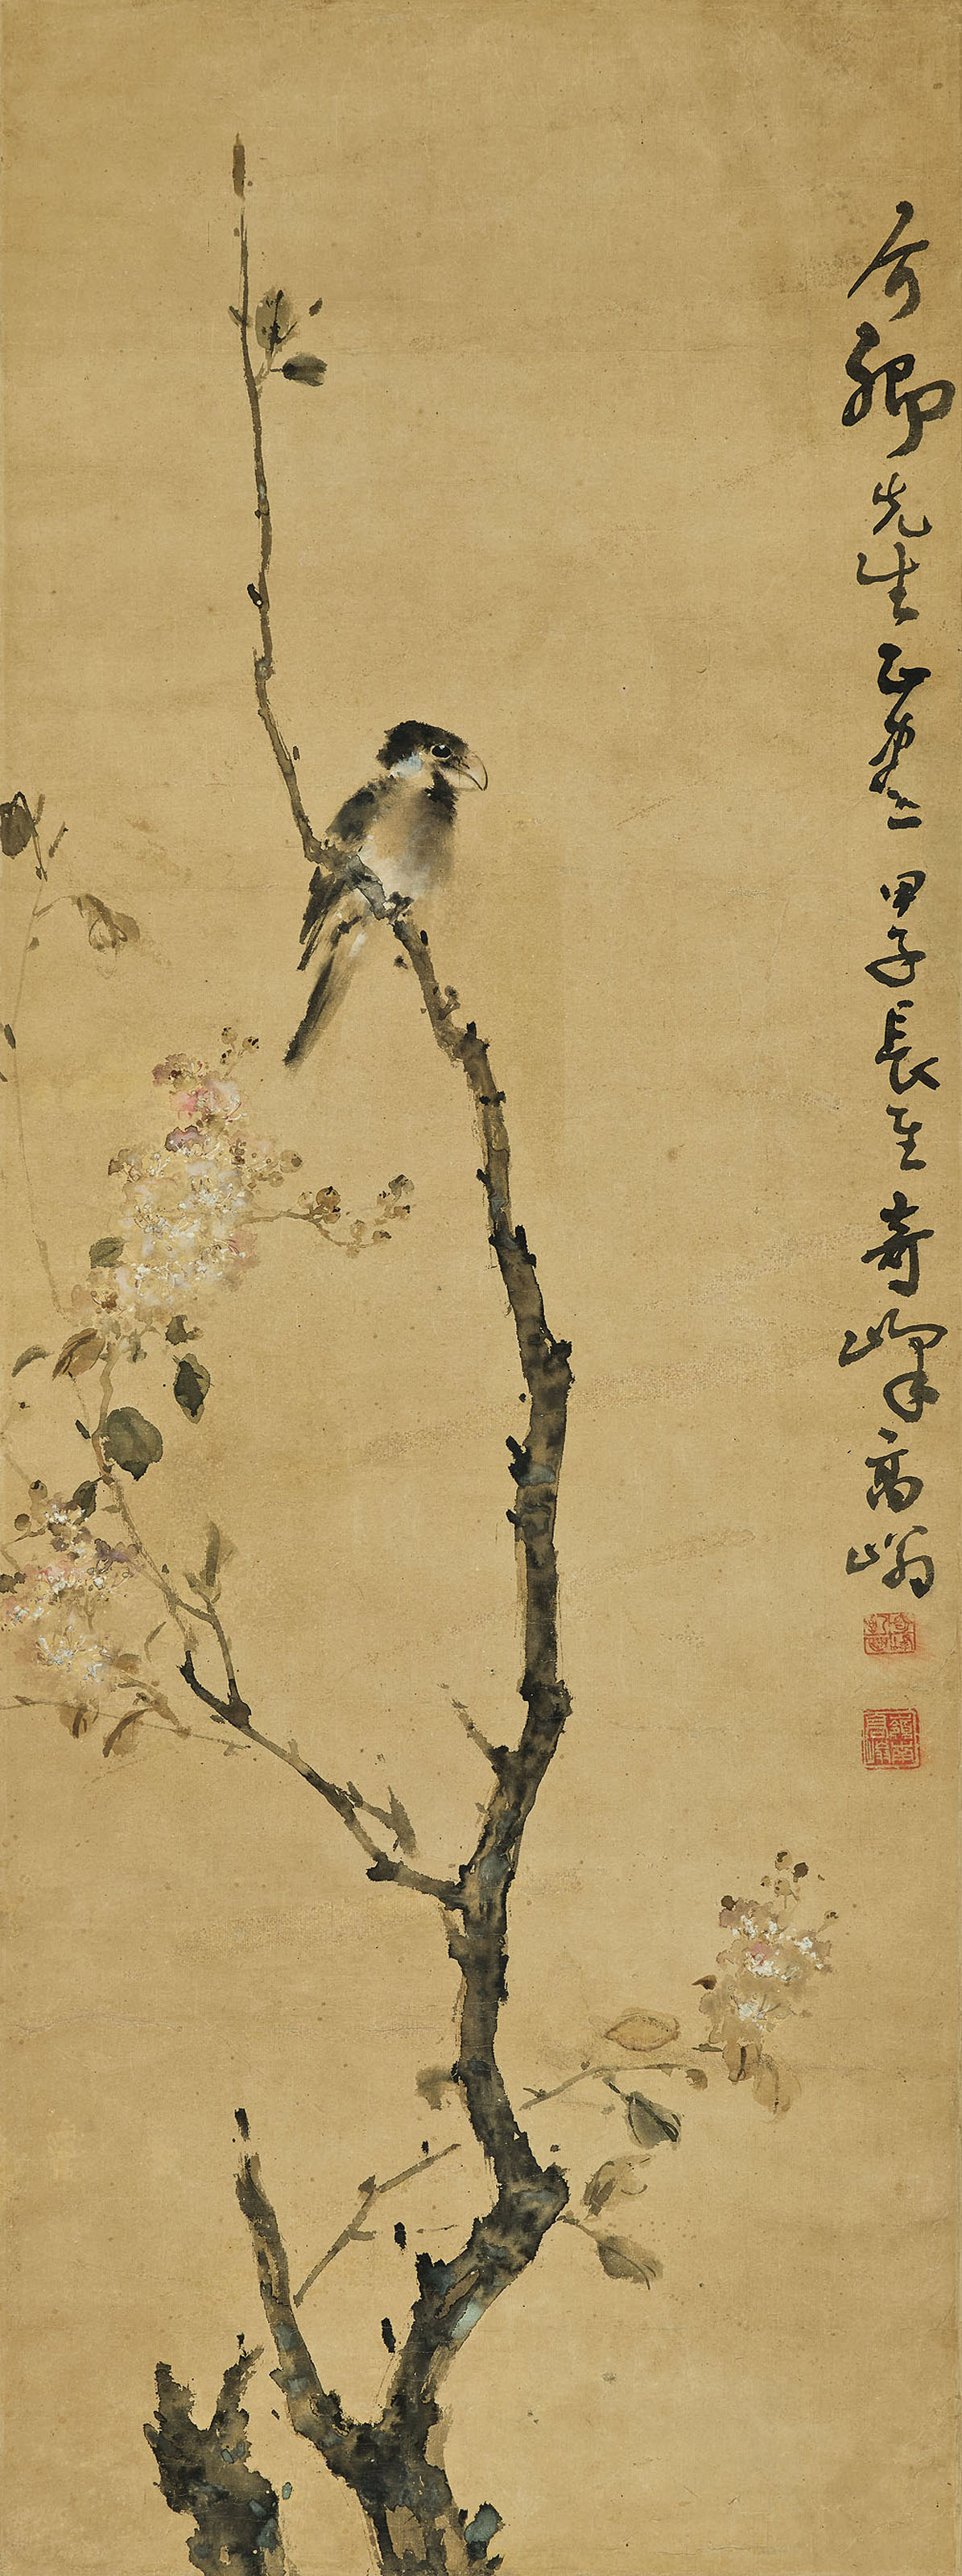 介卿先生正畫甲子長至奇峰高嵡